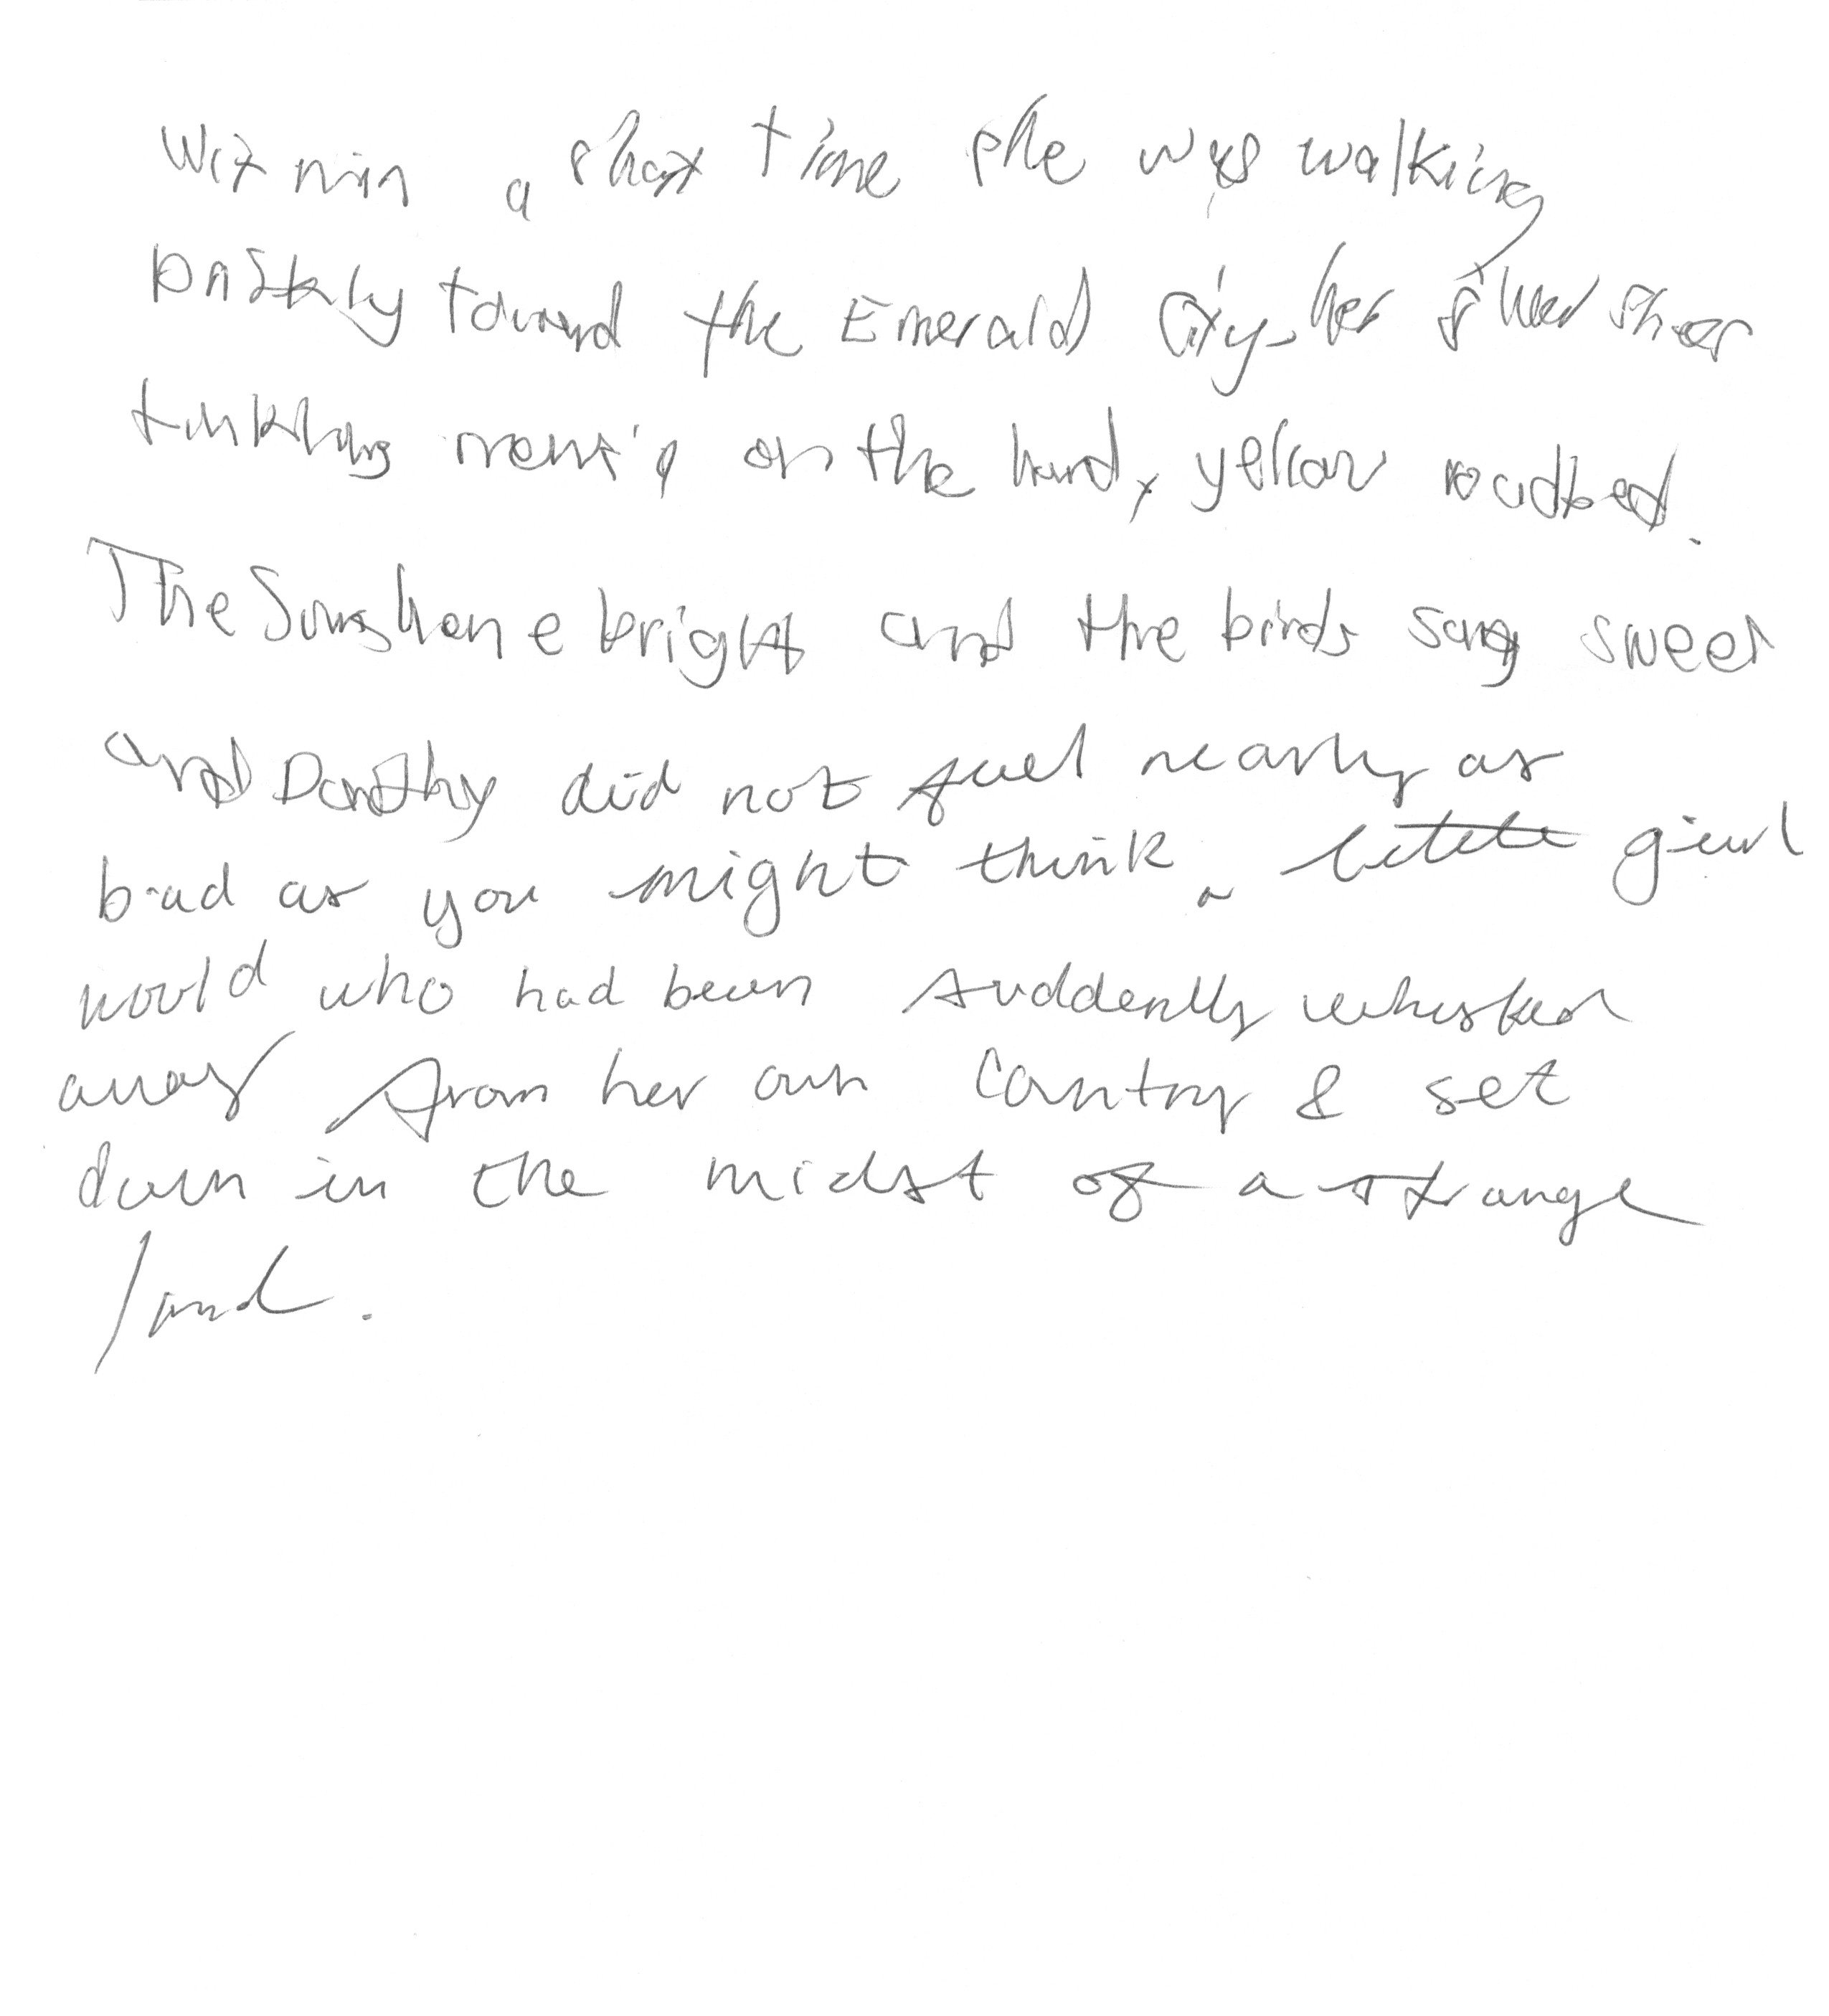 Within a short time she was walking
briskly toward the Emerald City, her silver shoes
tinkling merrily on the hard, yellow roadbed.
The sun shone bright and the birds sang sweet
and Dorothy did not feel nearly as
bad as you might think a little girl
would who had been suddenly whisked
away from her own country & set
down in the midst of a strange
land.